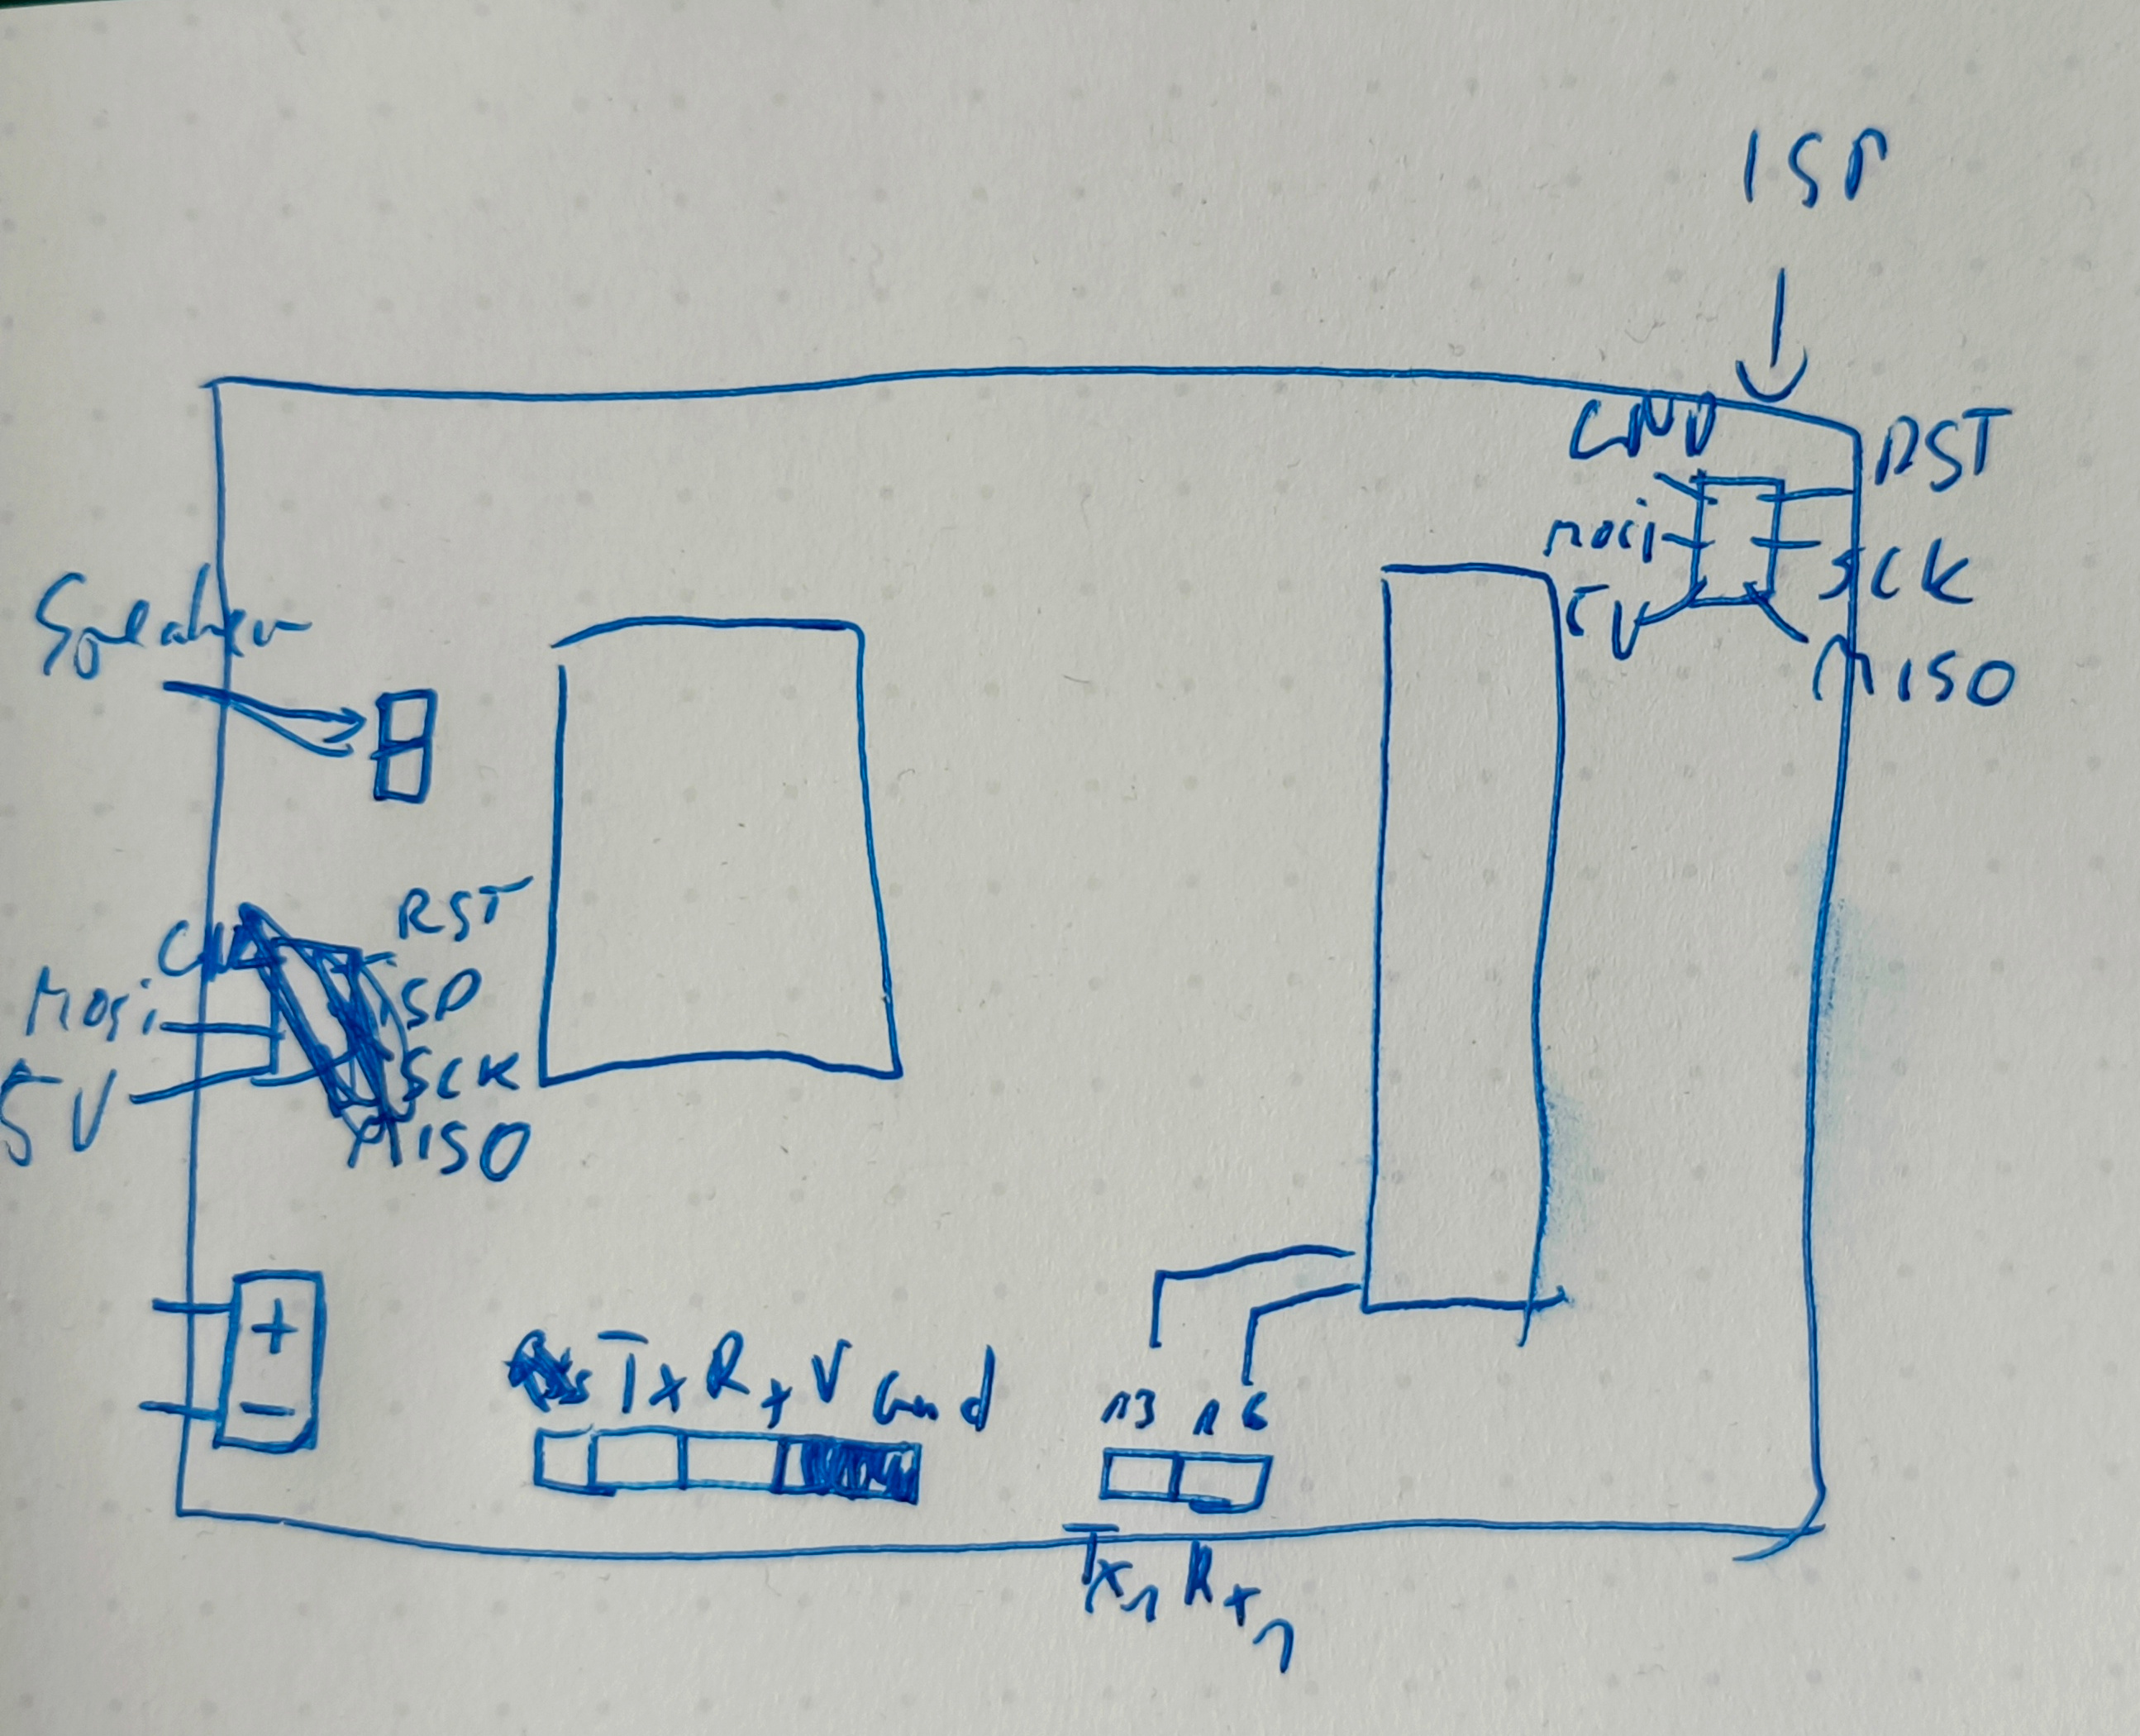 ISP
GND RST
Mosi SCK
5V MISO
Speaker
RST
Mosi ISP
5V SCK
MISO
+
Tx Rx V Gnd
-
13 16
Tx1 Rx1